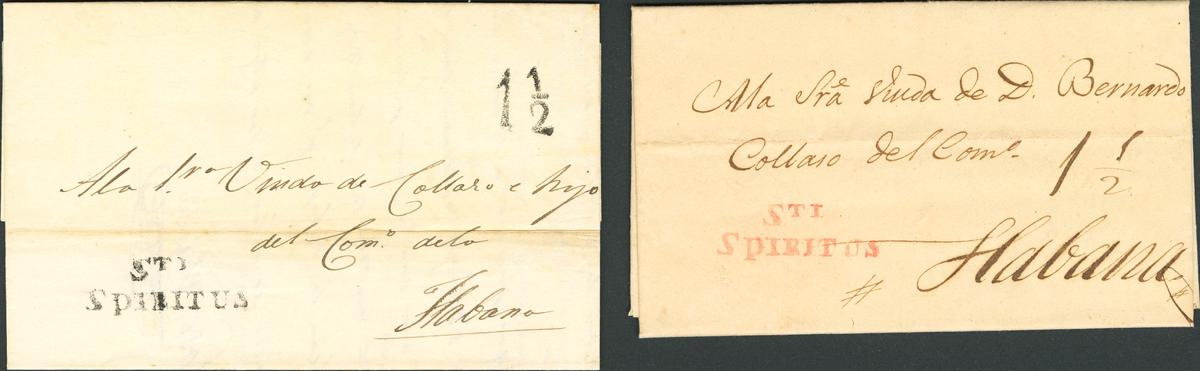 1 1/2
A la S.ra Viuda de Collazo e hijo
del Com.o de la
STI
SPIRITUS
Habana
A la Sra Viuda de D. Bernardo
Collaso del Come.
1 1/2
STI
SPIRITUS
Habana
#